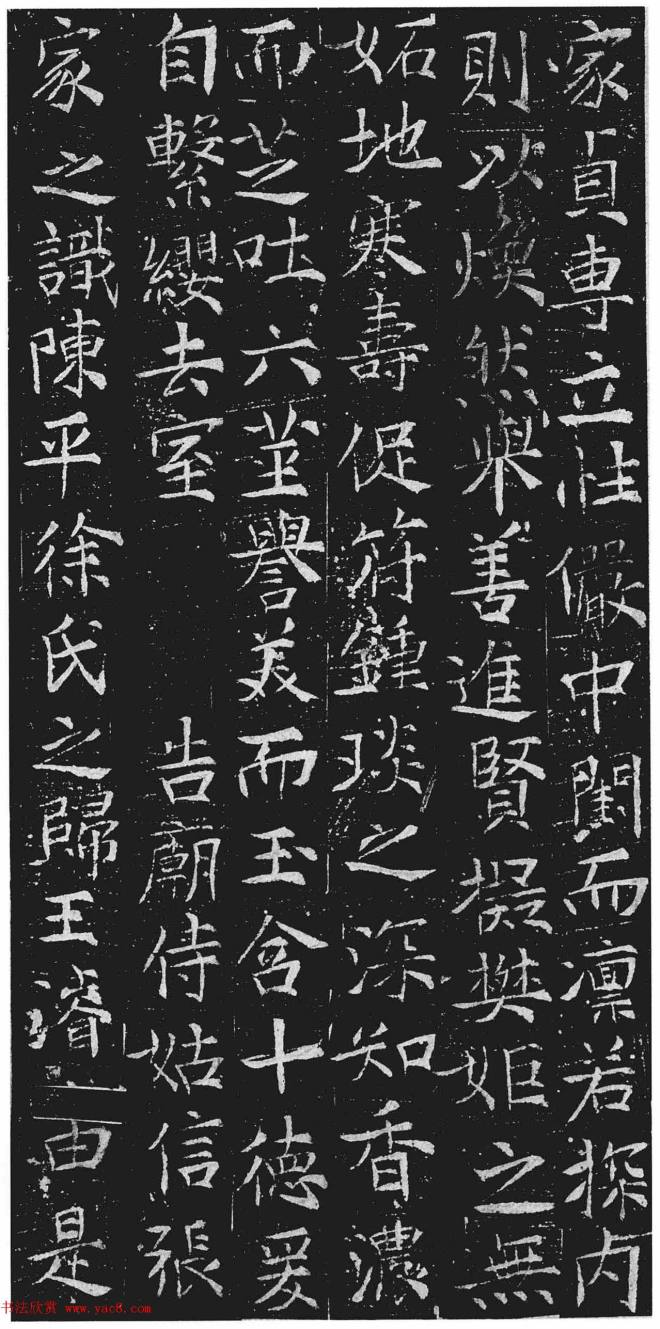 家貞専立性儼中閨而凛若探内
則以煥然舉善進賢擬樊姬之無
妬地寒壽促符鍾琰之深知香濃
而芝吐六莖譽美而玉含十德爰
自繫纓去室 告廟侍姑信張
家之識陳平徐氏之歸王濬由是
书法欣赏 www.yac8.com